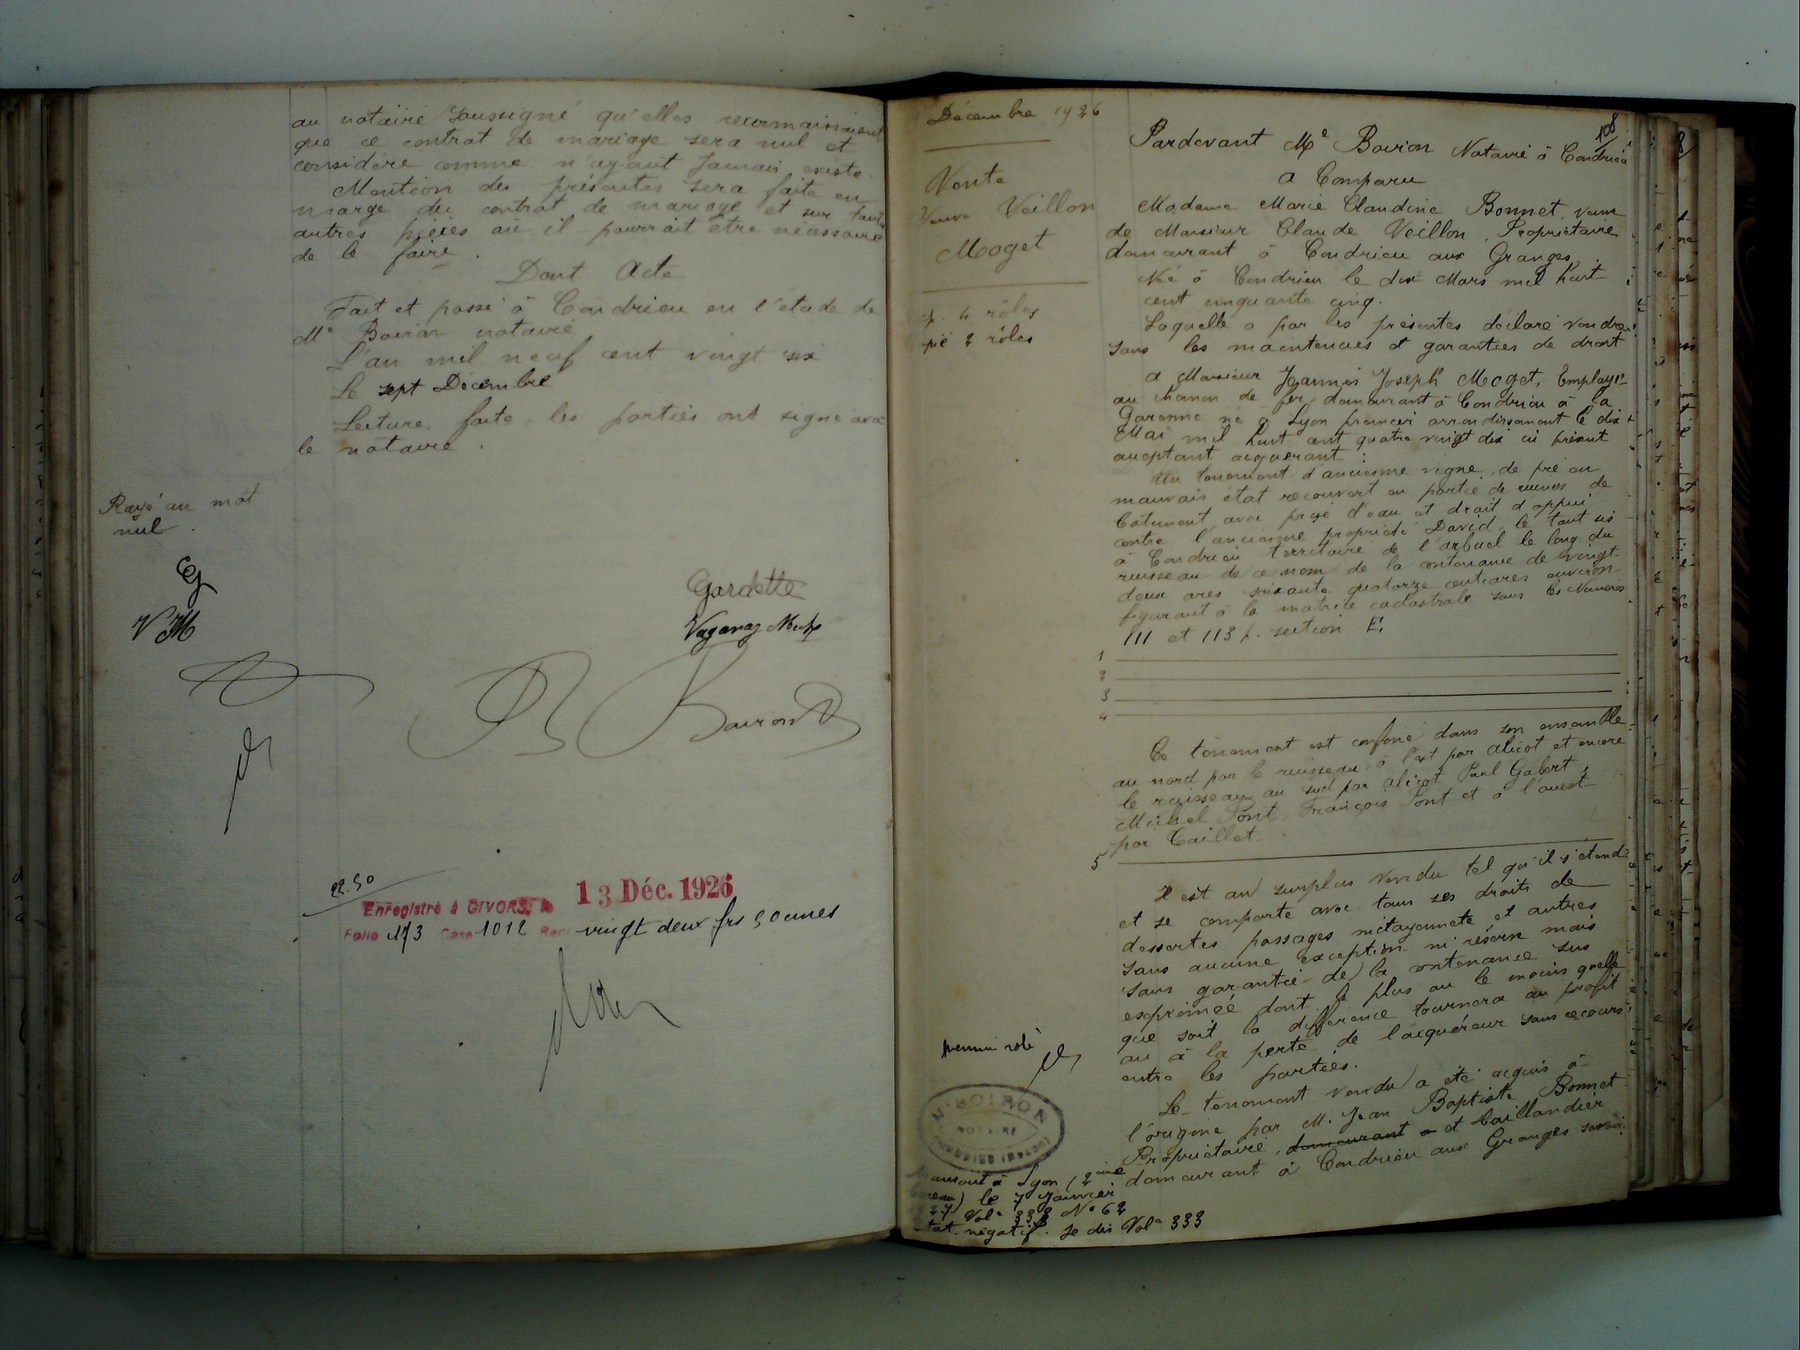 au notaire soussigné qu'elles reconnaissaient
que ce contrat de mariage sera nul et
considéré comme n'ayant jamais existé.
Mention des présentes sera faite en
marge du contrat de mariage et sur toutes
autres pièces où il pourrait être nécessaire
de le faire.
Dont Acte
Fait et passé à Condrieu en l'étude de
Me Boiron notaire
L'an mil neuf cent vingt six
Le sept Décembre
Lecture faite les parties ont signé avec
le notaire.
Rayé un mot
nul.
CG
VM
Gardette
Boiron
22.50
Enregistré à GIVORS, le 13 Déc. 1926
Folio 173 Case 1012 Reçu vingt deux frs 50 cmes
Décembre 1926
108
Vente
Veuve Veillon
Moget
4 rôles
2 rôles
Pardevant Me Boiron Notaire à Condrieu
a Comparu
Madame Marie Claudine Bonnet, veuve
de Monsieur Claude Veillon, Propriétaire
demeurant à Condrieu aux Granges.
Née à Condrieu le dix Mars mil huit
cent cinquante cinq.
Laquelle a par les présentes déclaré vendre
sous les maintenues et garanties de droit
à Monsieur Joannis Joseph Moget, Employé
au chemin de fer, demeurant à Condrieu à la
Garenne né à Lyon premier arrondissement le dix
Mai mil huit cent quatre vingt dix ici présent
acceptant acquérant :
Un tenement d'ancienne vigne, de pré en
mauvais état recouvert en partie de ruines de
bâtiment, avec prise d'eau et droit d'appui
contre l'ancienne propriété David, le tout sis
à Condrieu territoire de l'Arbuel le long du
ruisseau de ce nom de la contenance de vingt
deux ares soixante quatorze centiares environ
figurant à la matrice cadastrale sous les Numéros
111 et 113 p. section E.
1
2
3
4
Ce tènement est confiné dans son ensemble
au nord par le ruisseau à l'est par Alicot et encore
le ruisseau, au sud par Alicot Paul Gabert,
Michel Font, François Font et à l'ouest
par Caillet.
5
Il est au surplus vendu tel qu'il s'étend
et se comporte avec tous ses droits de
dessertes passages mitoyenneté et autres
sans aucune exception ni réserve mais
sans garantie de la contenance sus
exprimée dont le plus ou le moins quelle
que soit la différence tournera au profit
ou à la perte de l'acquéreur sans recours
entre les parties.
Le tenement vendu a été acquis à
l'origine par M. Jean Baptiste Bonnet
Propriétaire, demeurant à et Caillandier
demeurant à Condrieu aux Granges savoir
premier rôle
BOIRON
NOTAIRE
à Lyon (2ème
) le 7 Janvier
27 Vol. 338 No 62
négatif. Je dis Vol. 333